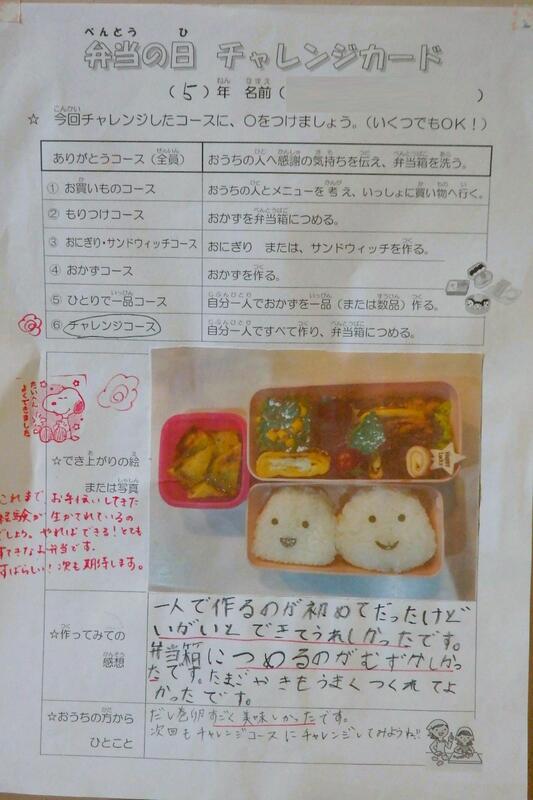 べんとう ひ
弁当の日 チャレンジカード
(5)年 名前(
☆ 今回チャレンジしたコースに、〇をつけましょう。(いくつでもOK!)
ありがとうコース(全員) おうちの人へ感謝の気持ちを伝え、弁当箱を洗う。
① お買いものコース おうちの人とメニューを考え、いっしょに買い物へ行く。
② もりつけコース おかずを弁当箱につめる。
③ おにぎり・サンドウィッチコース おにぎり または、サンドウィッチを作る。
④ おかずコース おかずを作る。
⑤ ひとりで一品コース 自分一人でおかずを一品(または数品)作る。
⑥ チャレンジコース 自分一人ですべて作り、弁当箱につめる。
たいへん
よくできました
☆でき上がりの絵
または写真
これまで お手伝いしてきた
経験が 生かされているの
でしょう。やればできる!とても
すてきなお弁当です。
すばらしい!次も期待します。
☆作ってみての
感想
一人で作るのが初めてだったけど
いがいと できてうれしかったです。
弁当箱につめるのがむずかしかっ
たです。たまごやきもうまくつくれてよ
かったです。
☆おうちの方から
ひとこと
だし巻卵すごく美味しかったです。
次回もチャレンジコースにチャレンジしてみようね!!